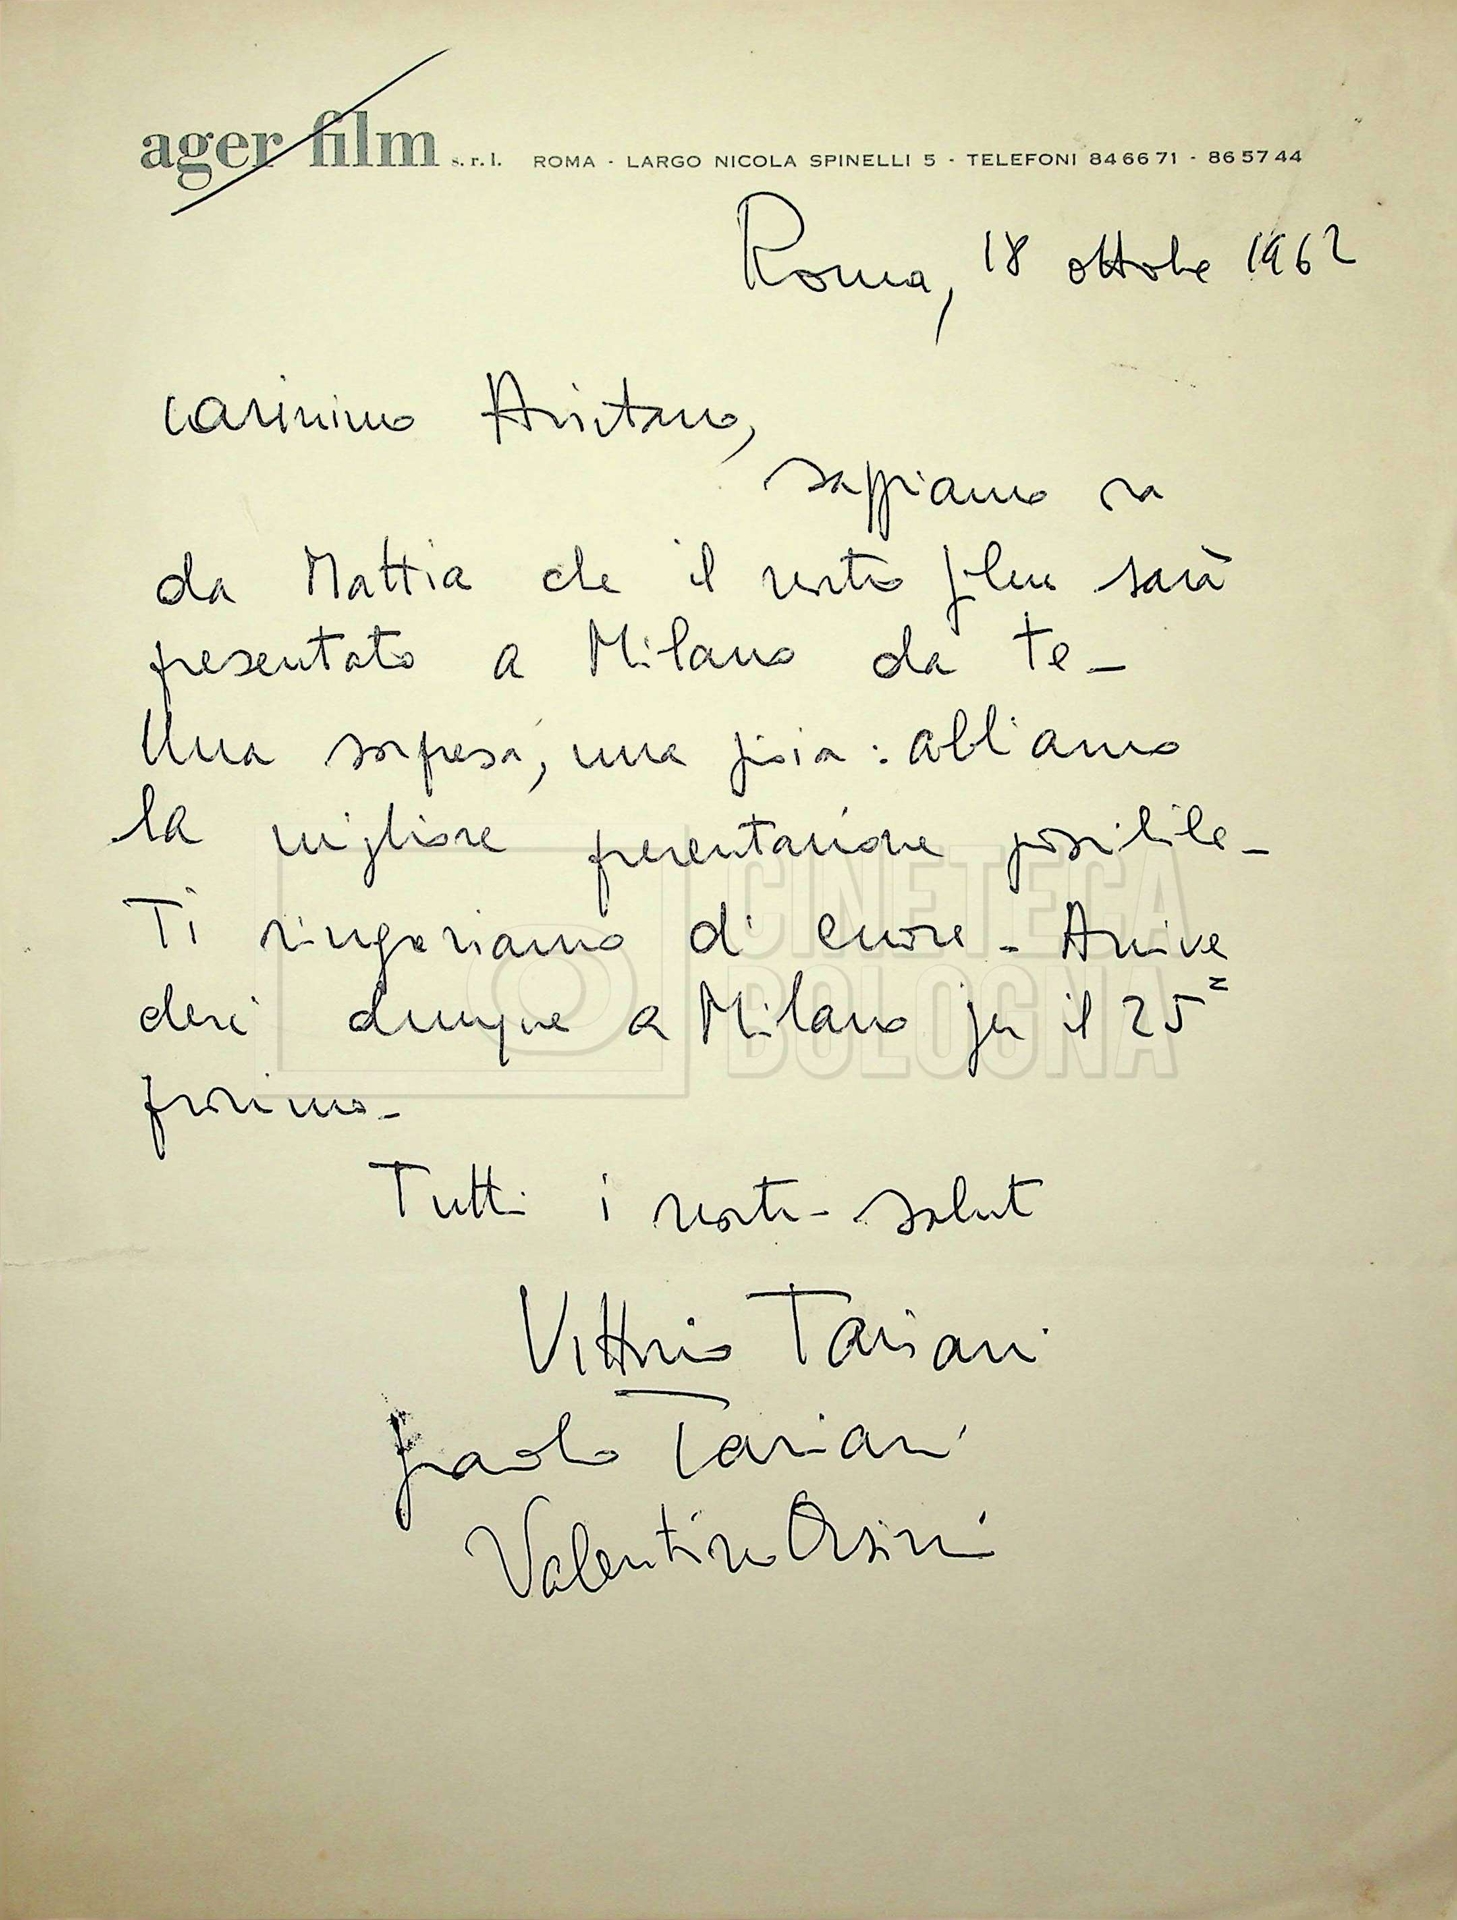 ager film s.r.l. ROMA - LARGO NICOLA SPINELLI 5 - TELEFONI 84 66 71 - 86 57 44
Roma, 18 ottobre 1962
carissimo Aristarco,
sappiamo ora
da Mattia che il nostro film sarà
presentato a Milano da te -
Una sorpresa, una gioia: abbiamo
la migliore presentazione possibile -
Ti ringraziamo di cuore - Arrive
derci dunque a Milano per il 25
prossimo -
Tutti i nostri saluti
Vittorio Taviani
paolo Taviani
Valentino Orsini
CINETECA
BOLOGNA